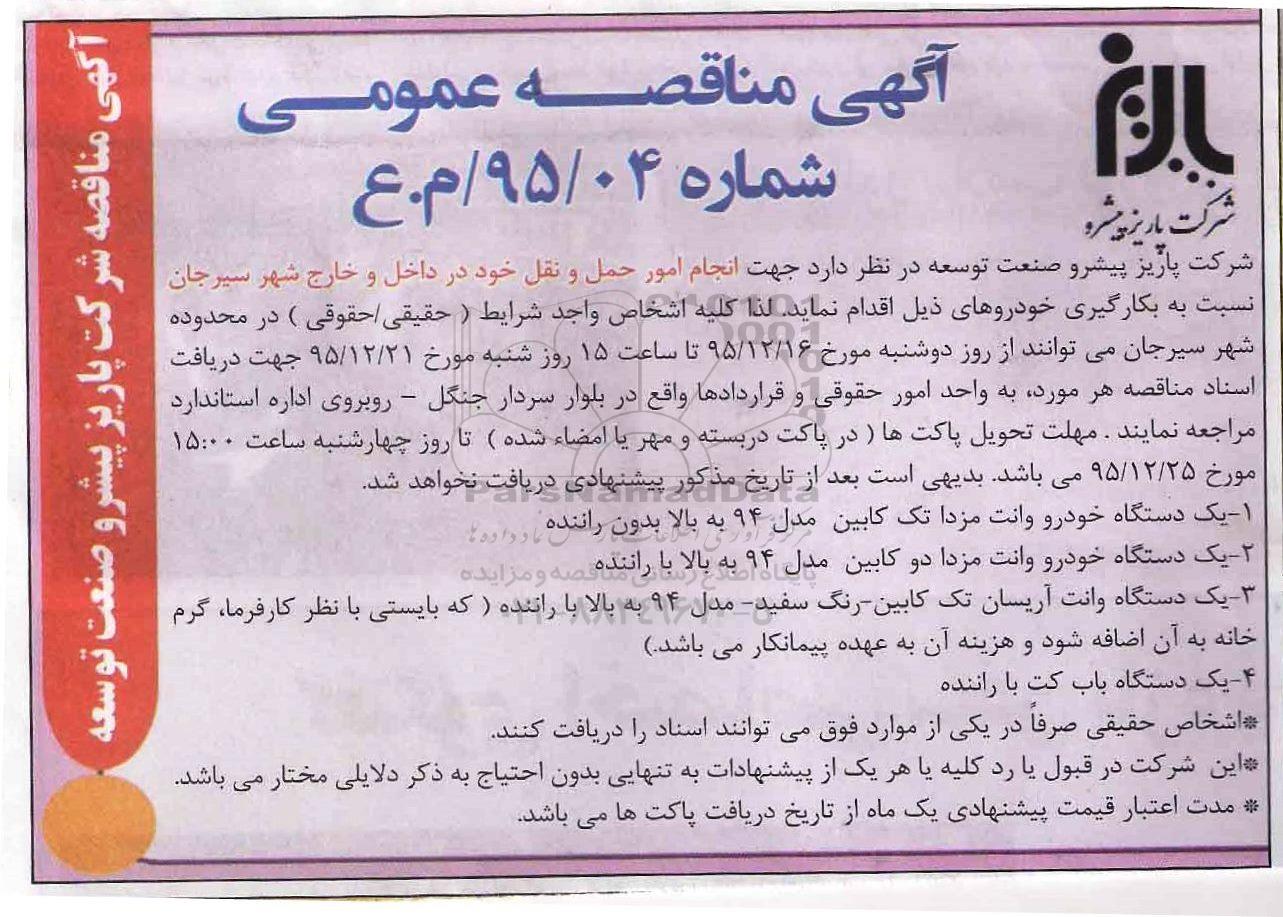 آگهی مناقصه عمومی
شماره ۹۵/۰۴/م.ع
پاریز
شرکت پاریز پیشرو
آگهی مناقصه شرکت پاریز پیشرو صنعت توسعه
شرکت پاریز پیشرو صنعت توسعه در نظر دارد جهت انجام امور حمل و نقل خود در داخل و خارج شهر سیرجان
نسبت به بکارگیری خودروهای ذیل اقدام نماید. لذا کلیه اشخاص واجد شرایط ( حقیقی/حقوقی ) در محدوده
شهر سیرجان می توانند از روز دوشنبه مورخ ۹۵/۱۲/۱۶ تا ساعت ۱۵ روز شنبه مورخ ۹۵/۱۲/۲۱ جهت دریافت
اسناد مناقصه هر مورد، به واحد امور حقوقی و قراردادها واقع در بلوار سردار جنگل - روبروی اداره استاندارد
مراجعه نمایند . مهلت تحویل پاکت ها ( در پاکت دربسته و مهر یا امضاء شده ) تا روز چهارشنبه ساعت ۱۵:۰۰
مورخ ۹۵/۱۲/۲۵ می باشد. بدیهی است بعد از تاریخ مذکور پیشنهادی دریافت نخواهد شد.
ParsNamadData
۱-یک دستگاه خودرو وانت مزدا تک کابین مدل ۹۴ به بالا بدون راننده
۲-یک دستگاه خودرو وانت مزدا دو کابین مدل ۹۴ به بالا با راننده
پایگاه اطلاع رسانی مناقصه و مزایده
۳-یک دستگاه وانت آریسان تک کابین-رنگ سفید- مدل ۹۴ به بالا با راننده ( که بایستی با نظر کارفرما، گرم
خانه به آن اضافه شود و هزینه آن به عهده پیمانکار می باشد.)
۴-یک دستگاه باب کت با راننده
*اشخاص حقیقی صرفاً در یکی از موارد فوق می توانند اسناد را دریافت کنند.
*این شرکت در قبول یا رد کلیه یا هر یک از پیشنهادات به تنهایی بدون احتیاج به ذکر دلایلی مختار می باشد.
* مدت اعتبار قیمت پیشنهادی یک ماه از تاریخ دریافت پاکت ها می باشد.